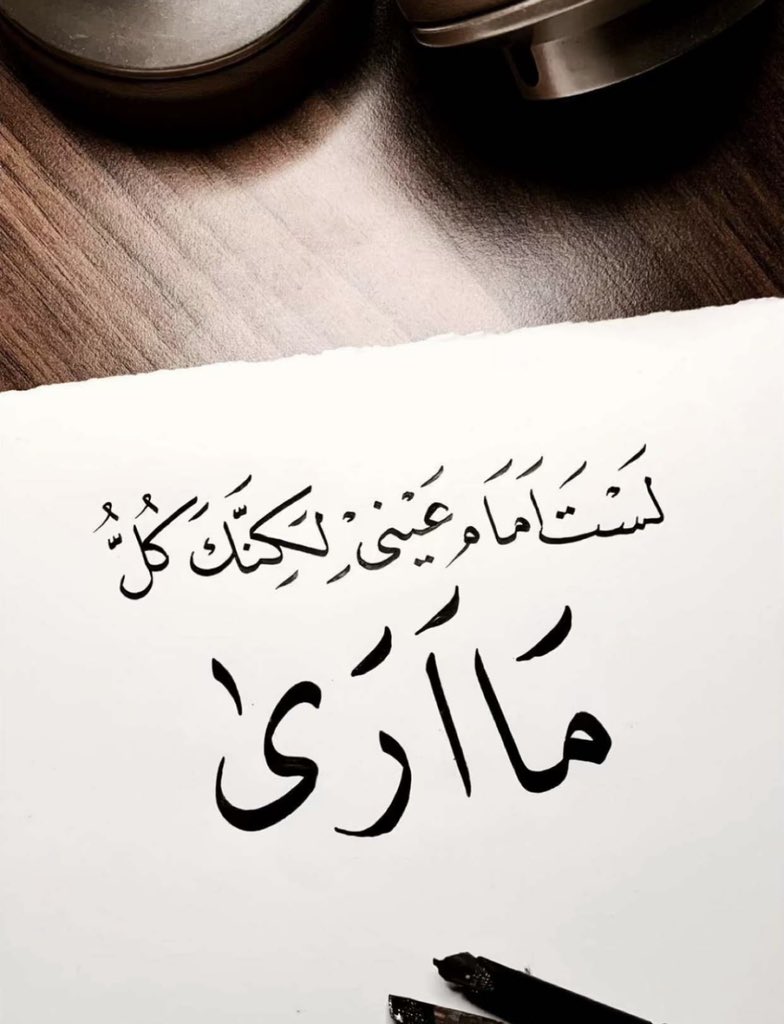 لَسْتَ اَمَامَ عَيْنِيْ لَكِنَّكَ كُلُّ
مَا اَرَىٰ